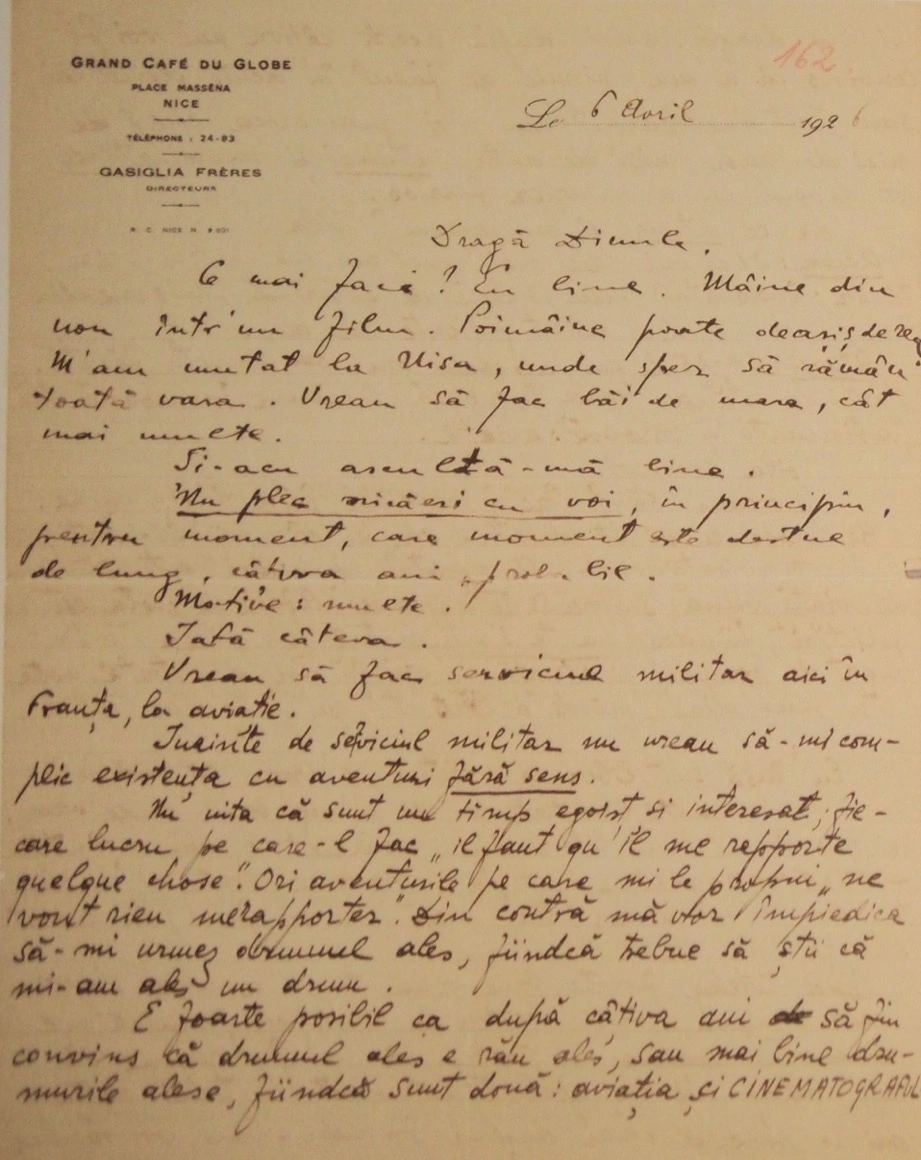 GRAND CAFÉ DU GLOBE
PLACE MASSÉNA
NICE
TÉLÉPHONE : 24-83
GASIGLIA FRÈRES
DIRECTEURS
R. C. NICE N.
162
Le 6 Avril 1926
Dragă
Ce mai faci? Eu bine. Mâine din
nou într'un film. Poimâine poate
M'am mutat la Nisa, unde sper să rămân
toată vara. Vreau să fac băi de mare, cât
mai multe.
Si-acu ascultă-mă bine.
Nu plec nicăeri cu voi, în principiu,
pentru moment, care moment este destul
de lung, câtiva ani probabil.
Motive: multe.
Iată câteva.
Vreau să fac serviciul militar aici în
Franța, la aviatie.
Inainte de serviciul militar nu vreau să-mi com-
plic existența cu aventuri fără sens.
Nu uita că sunt un timp egoist si interesat; fie-
care lucru pe care-l fac „il faut qu'il me rapporte
quelque chose". Ori aventurile pe care mi le propui „ne
vont rien me rapporter". Din contră mă vor împiedica
să-mi urmez drumul ales, fiindcă trebue să știi că
mi-am ales un drum.
E foarte posibil ca după câtiva ani să fiu
convins că drumul ales e rău ales, sau mai bine dru-
murile alese, fiindcă sunt două: aviația și CINEMATOGRAFUL